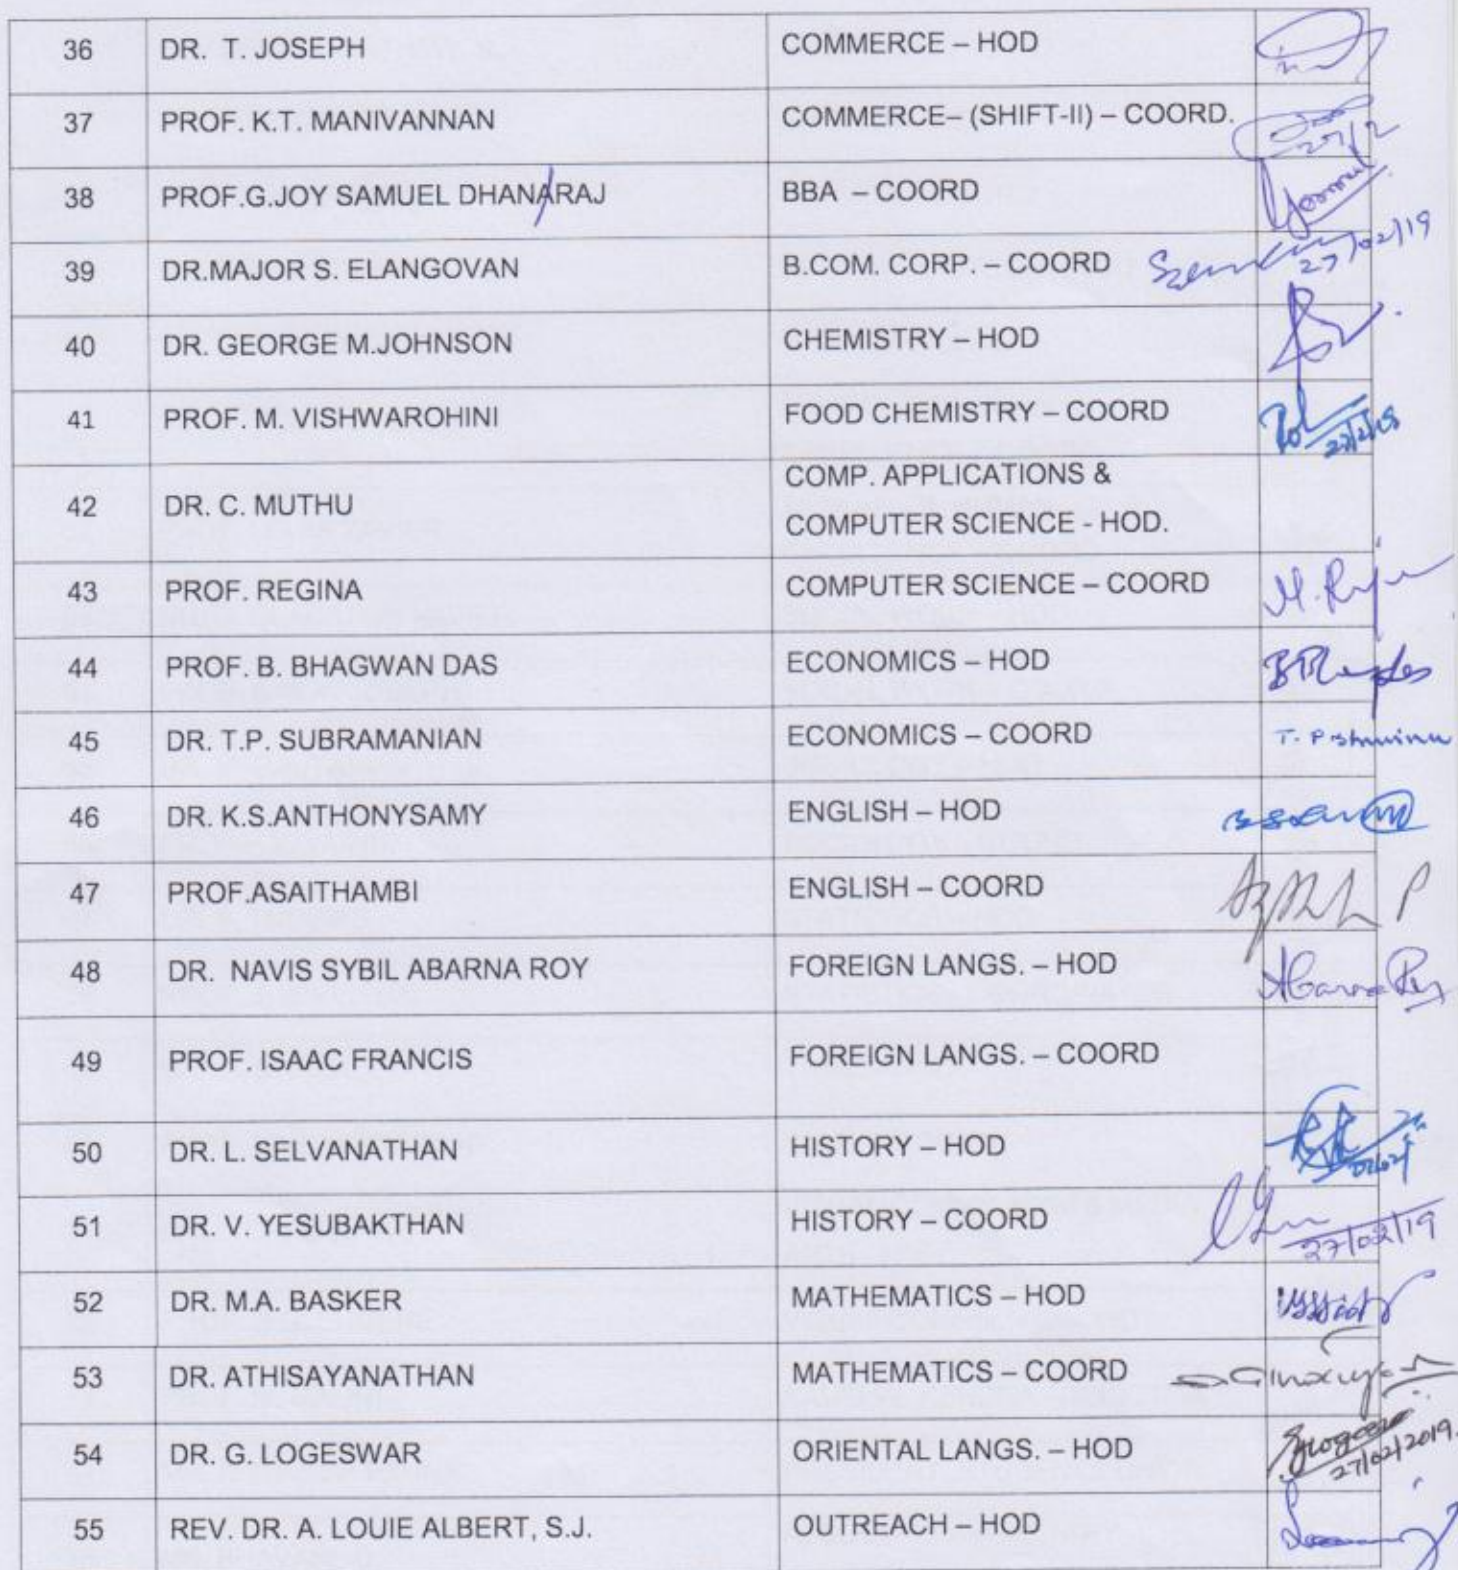 36 DR. T. JOSEPH COMMERCE – HOD
37 PROF. K.T. MANIVANNAN COMMERCE– (SHIFT-II) – COORD. 27/2
38 PROF.G.JOY SAMUEL DHANARAJ BBA – COORD
39 DR.MAJOR S. ELANGOVAN B.COM. CORP. – COORD 27/02/19
40 DR. GEORGE M.JOHNSON CHEMISTRY – HOD
41 PROF. M. VISHWAROHINI FOOD CHEMISTRY – COORD
42 DR. C. MUTHU COMP. APPLICATIONS &
COMPUTER SCIENCE - HOD.
43 PROF. REGINA COMPUTER SCIENCE – COORD
44 PROF. B. BHAGWAN DAS ECONOMICS – HOD
45 DR. T.P. SUBRAMANIAN ECONOMICS – COORD
46 DR. K.S.ANTHONYSAMY ENGLISH – HOD
47 PROF.ASAITHAMBI ENGLISH – COORD
48 DR. NAVIS SYBIL ABARNA ROY FOREIGN LANGS. – HOD
49 PROF. ISAAC FRANCIS FOREIGN LANGS. – COORD
50 DR. L. SELVANATHAN HISTORY – HOD
51 DR. V. YESUBAKTHAN HISTORY – COORD 27/02/19
52 DR. M.A. BASKER MATHEMATICS – HOD
53 DR. ATHISAYANATHAN MATHEMATICS – COORD
54 DR. G. LOGESWAR ORIENTAL LANGS. – HOD 27/02/2019.
55 REV. DR. A. LOUIE ALBERT, S.J. OUTREACH – HOD